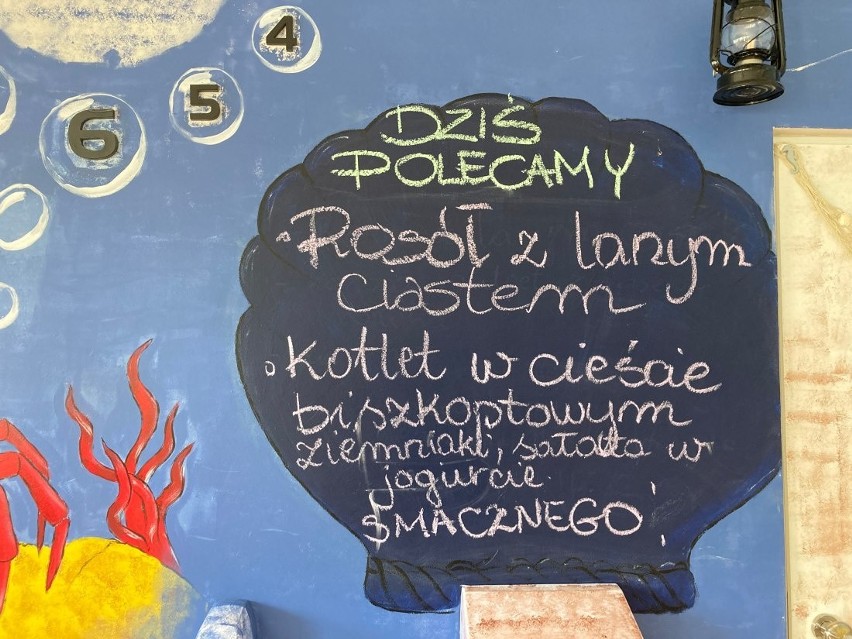 4
5
6
DZIŚ
POLECAMY
• Rosół z lanym
ciastem
• Kotlet w cieście
biszkoptowym
ziemniaki, sałata w
jogurcie.
SMACZNEGO!